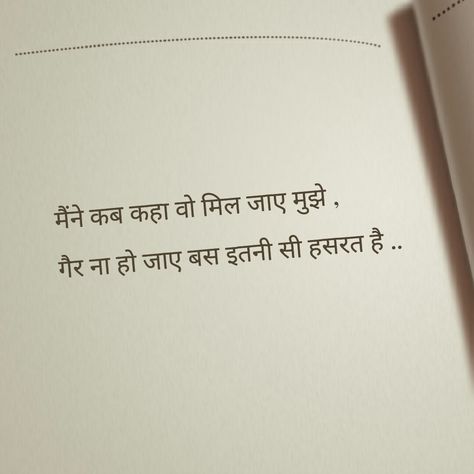 मैंने कब कहा वो मिल जाए मुझे ,
गैर ना हो जाए बस इतनी सी हसरत है ..